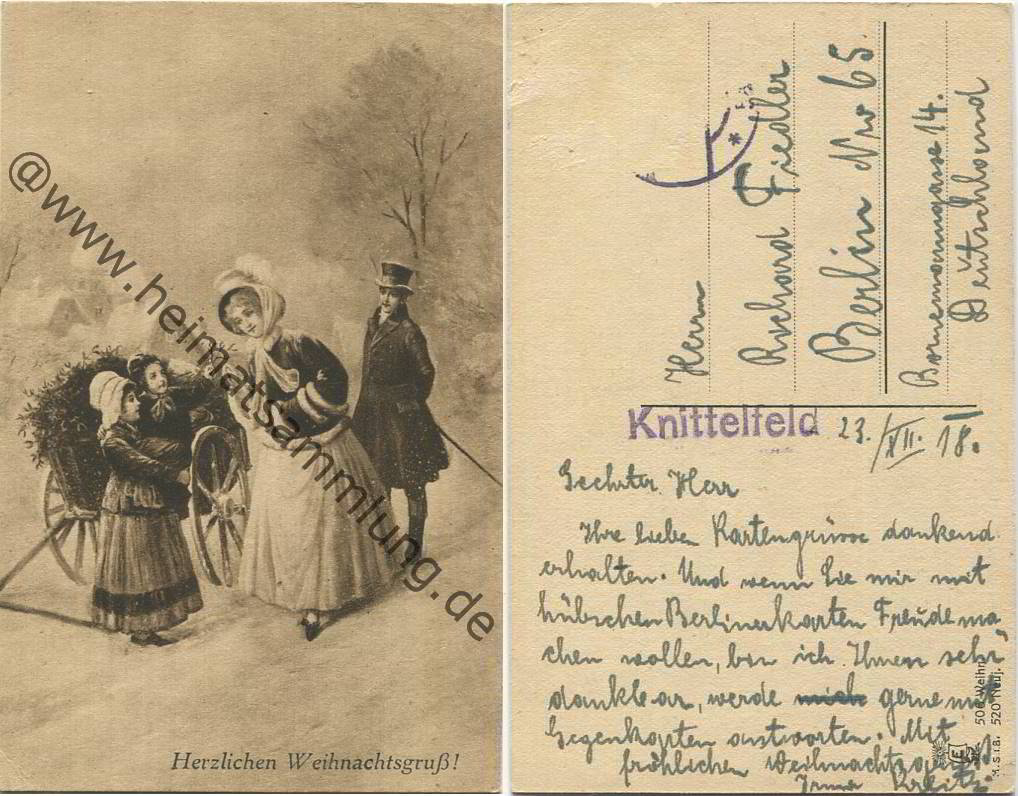 @www.heimatsammlung.de
Herzlichen Weihnachtsgruß!
Herrn
Richard Fiedler
Berlin Nw 65.
Bornemanngasse 14.
Deutschland
Knittelfeld 23./XII. 18.
Geehrter Herr
Ihre lieben Kartengrüsse dankend
erhalten. Und wenn Sie mir mit
hübschen Berlinerkarten Freude ma
chen wollen, bin ich Ihnen sehr
dankbar, werde mich gerne mit
Gegenkarten antworten. Mit
fröhlichen Weihnachtsgruß
Irma
508 Weihn.
520 Neuj.
M.S.i.B.